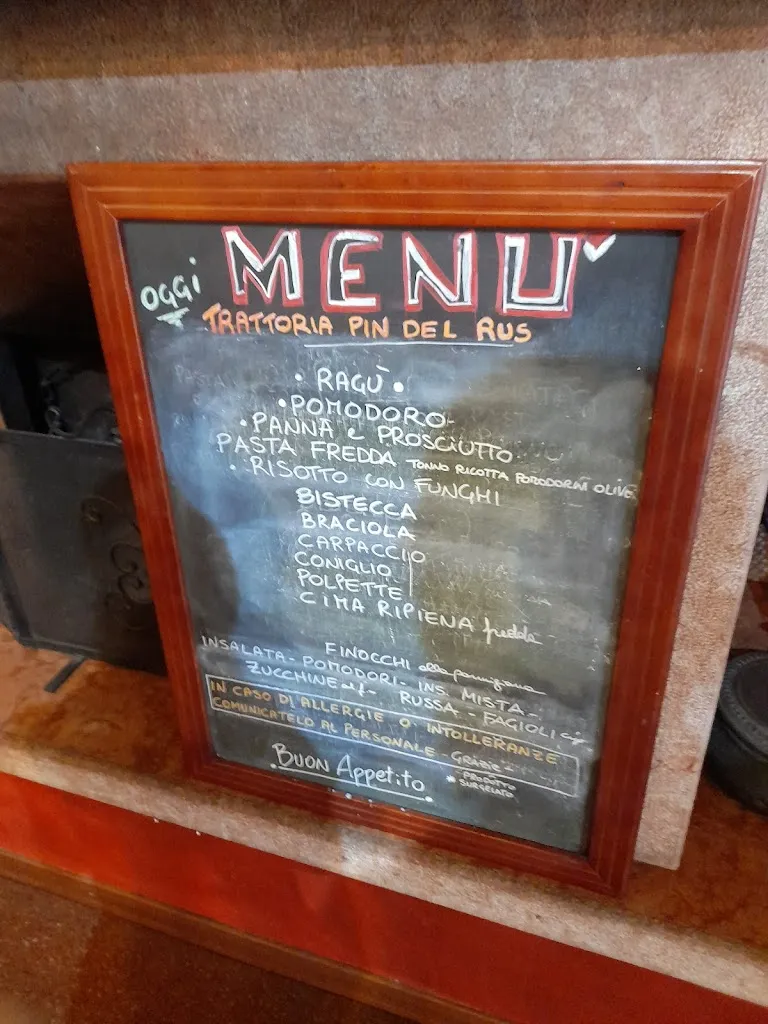 OGGI
MENÙ
TRATTORIA PIN DEL RUS
• RAGÙ •
• POMODORO
• PANNA e PROSCIUTTO
PASTA FREDDA TONNO RICOTTA POMODORINI OLIVE
• RISOTTO CON FUNGHI
BISTECCA
BRACIOLA
CARPACCIO
CONIGLIO
POLPETTE
CIMA RIPIENA fredda
FINOCCHI alla parmigiana
INSALATA - POMODORI - INS. MISTA -
ZUCCHINE - RUSSA - FAGIOLI
IN CASO DI ALLERGIE O INTOLLERANZE
COMUNICATELO AL PERSONALE - GRAZIE -
BUON Appetito
* PRODOTTO
SURGELATO